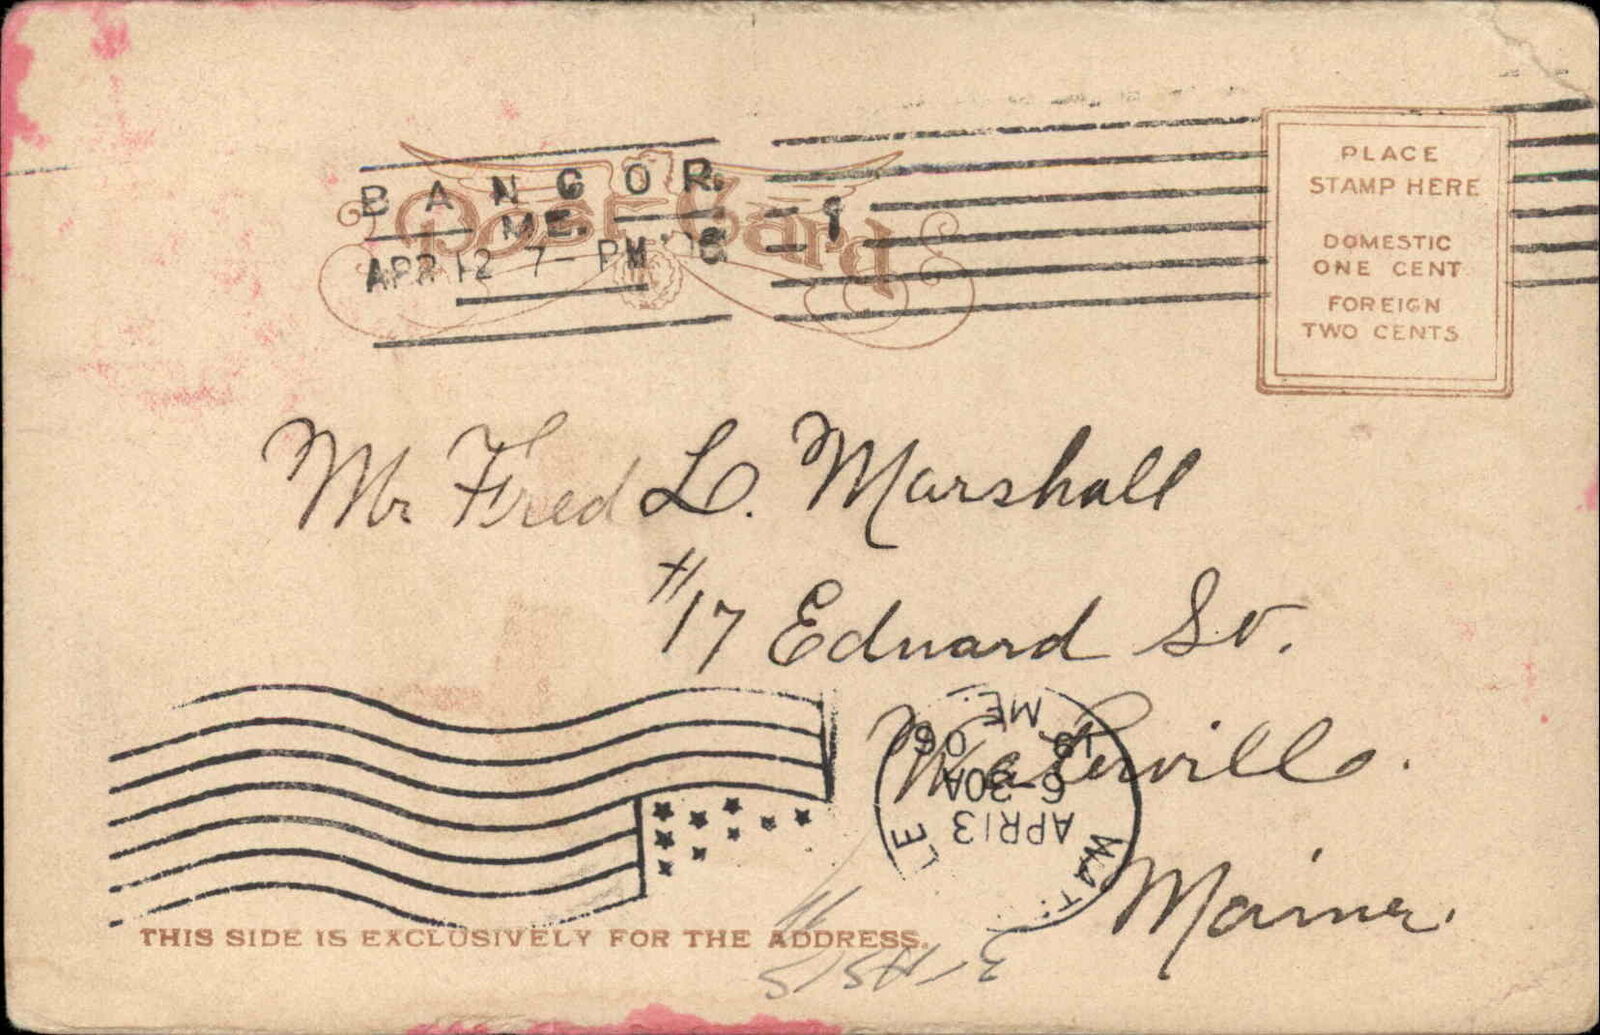 BANGOR.
ME.
APR 12 7-PM '06
1
Post Card
PLACE
STAMP HERE
DOMESTIC
ONE CENT
FOREIGN
TWO CENTS
Mr Fred L. Marshall
#17 Edward St.
Waterville.
Maine.
WAT. LE
APR 13
6-30A
19 06
ME.
THIS SIDE IS EXCLUSIVELY FOR THE ADDRESS.